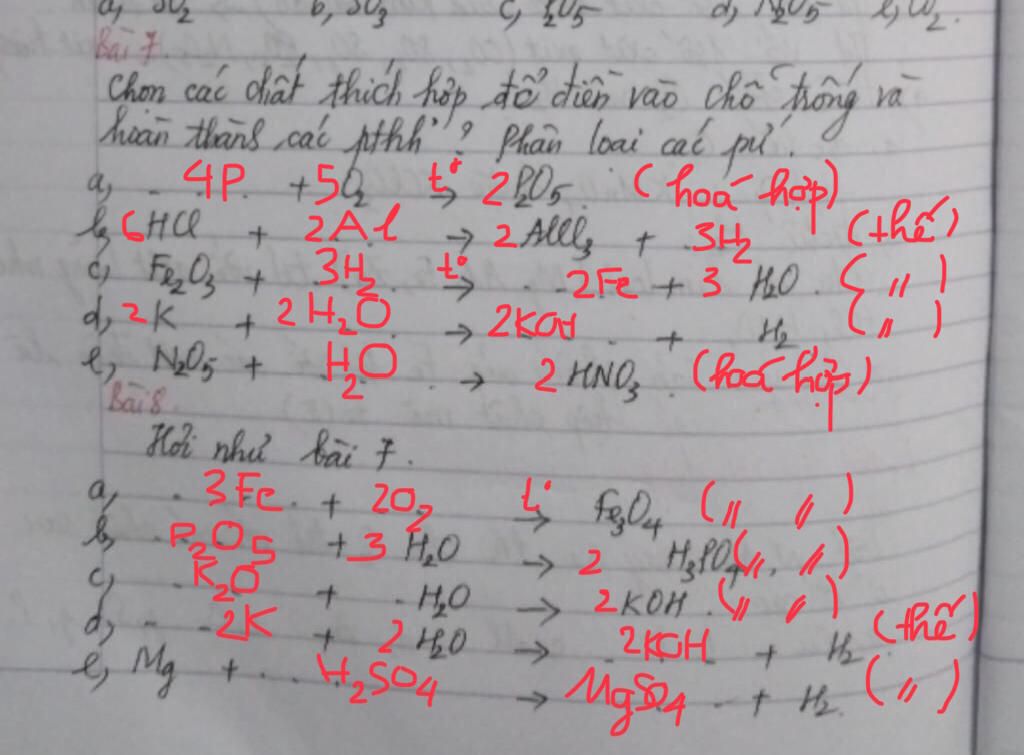 a, SO2 b, SO3 c, P2O5 d, N2O5 e, CO2.
Bài 7
Chọn các chất thích hợp để điền vào chỗ trống và
hoàn thành các pthh? Phân loại các pứ.
a, 4P + 5O2 t° → 2P2O5. (hoá hợp)
b, 6HCl + 2Al → 2AlCl3 + 3H2 (thế)
c, Fe2O3 + 3H2 t° → 2Fe + 3 H2O. ( 〃 )
d, 2K + 2H2O → 2KOH + H2 ( 〃 )
e, N2O5 + H2O → 2HNO3. (hoá hợp)
Bài 8.
Hỏi như bài 7.
a, 3Fe + 2O2 t° → Fe3O4 ( 〃 〃 )
b, P2O5 + 3 H2O → 2 H3PO4 ( 〃 〃 )
c, K2O + H2O → 2KOH. ( 〃 〃 )
d, 2K + 2H2O → 2KOH + H2. (thế)
e, Mg + H2SO4 → MgSO4 + H2. ( 〃 )